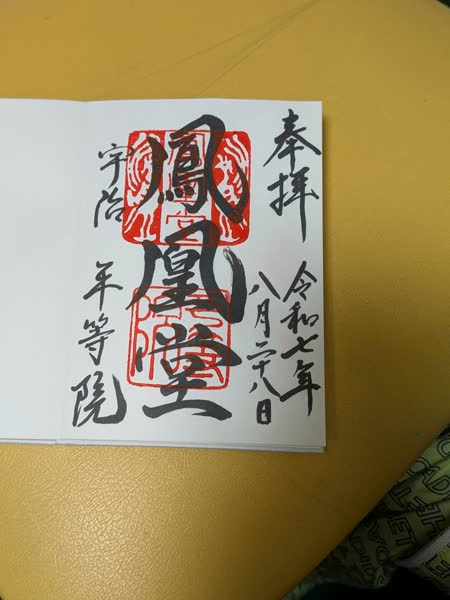 奉拝
令和七年
八月二十八日
鳳凰堂
宇治 平等院